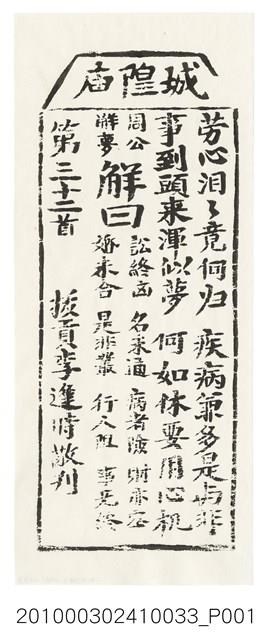 城隍廟
劳心汨々竟何归 疾病兼多是与非
事到頭来渾似夢 何如休要用心机
周公 訟終凶 名未通 病者險 財亦空
解夢 解曰 婚未合 是非叢 行人阻 事无終
第三十二首 拔貢李逢時敬刋
201000302410033_P001